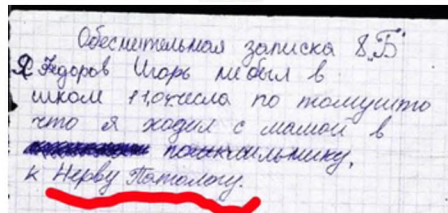 Обеснительная записка 8„Б"
Я Федоров Игорь не был в
школ 11,04числа по томушто
что я ходил с мамой в
к Нерву Патологу.